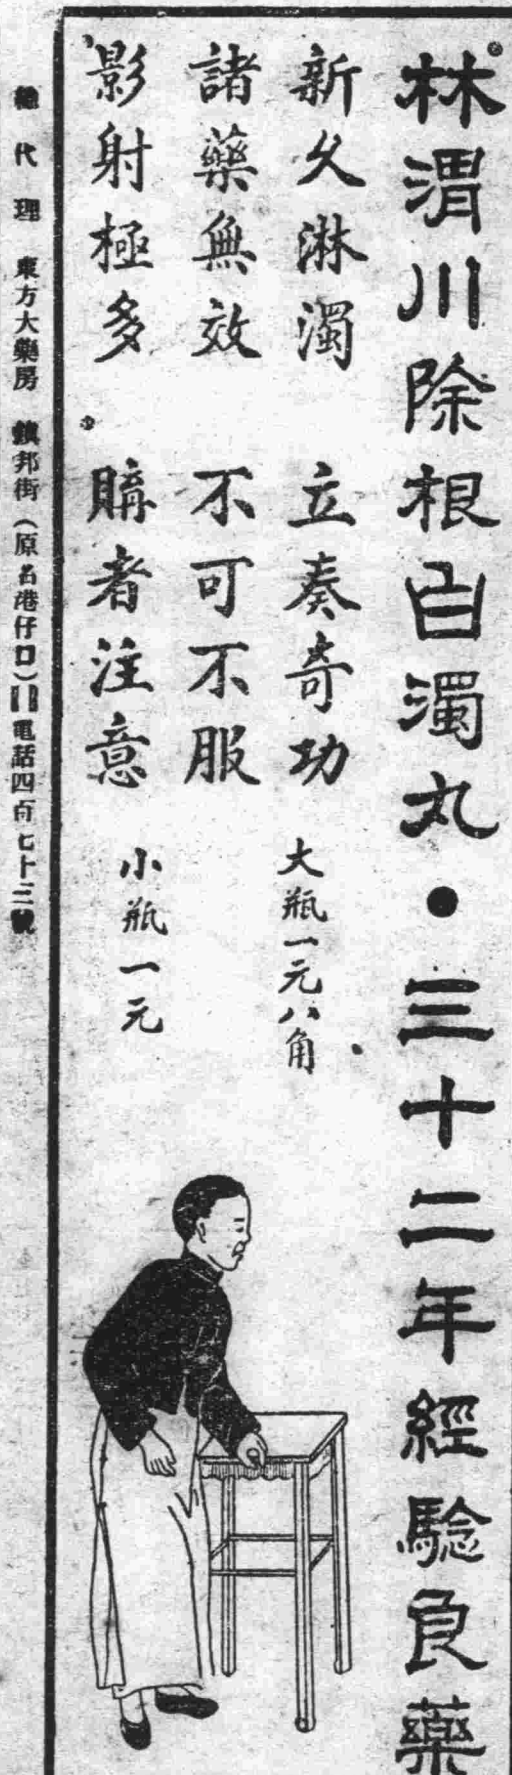 林渭川除根白濁丸•三十二年經驗良藥
新久淋濁 立奏奇功
大瓶一元八角
諸藥無效 不可不服
影射極多 購者注意
小瓶一元
總代理 東方大藥房 鎮邦街(原名港仔口)電話四百七十三號